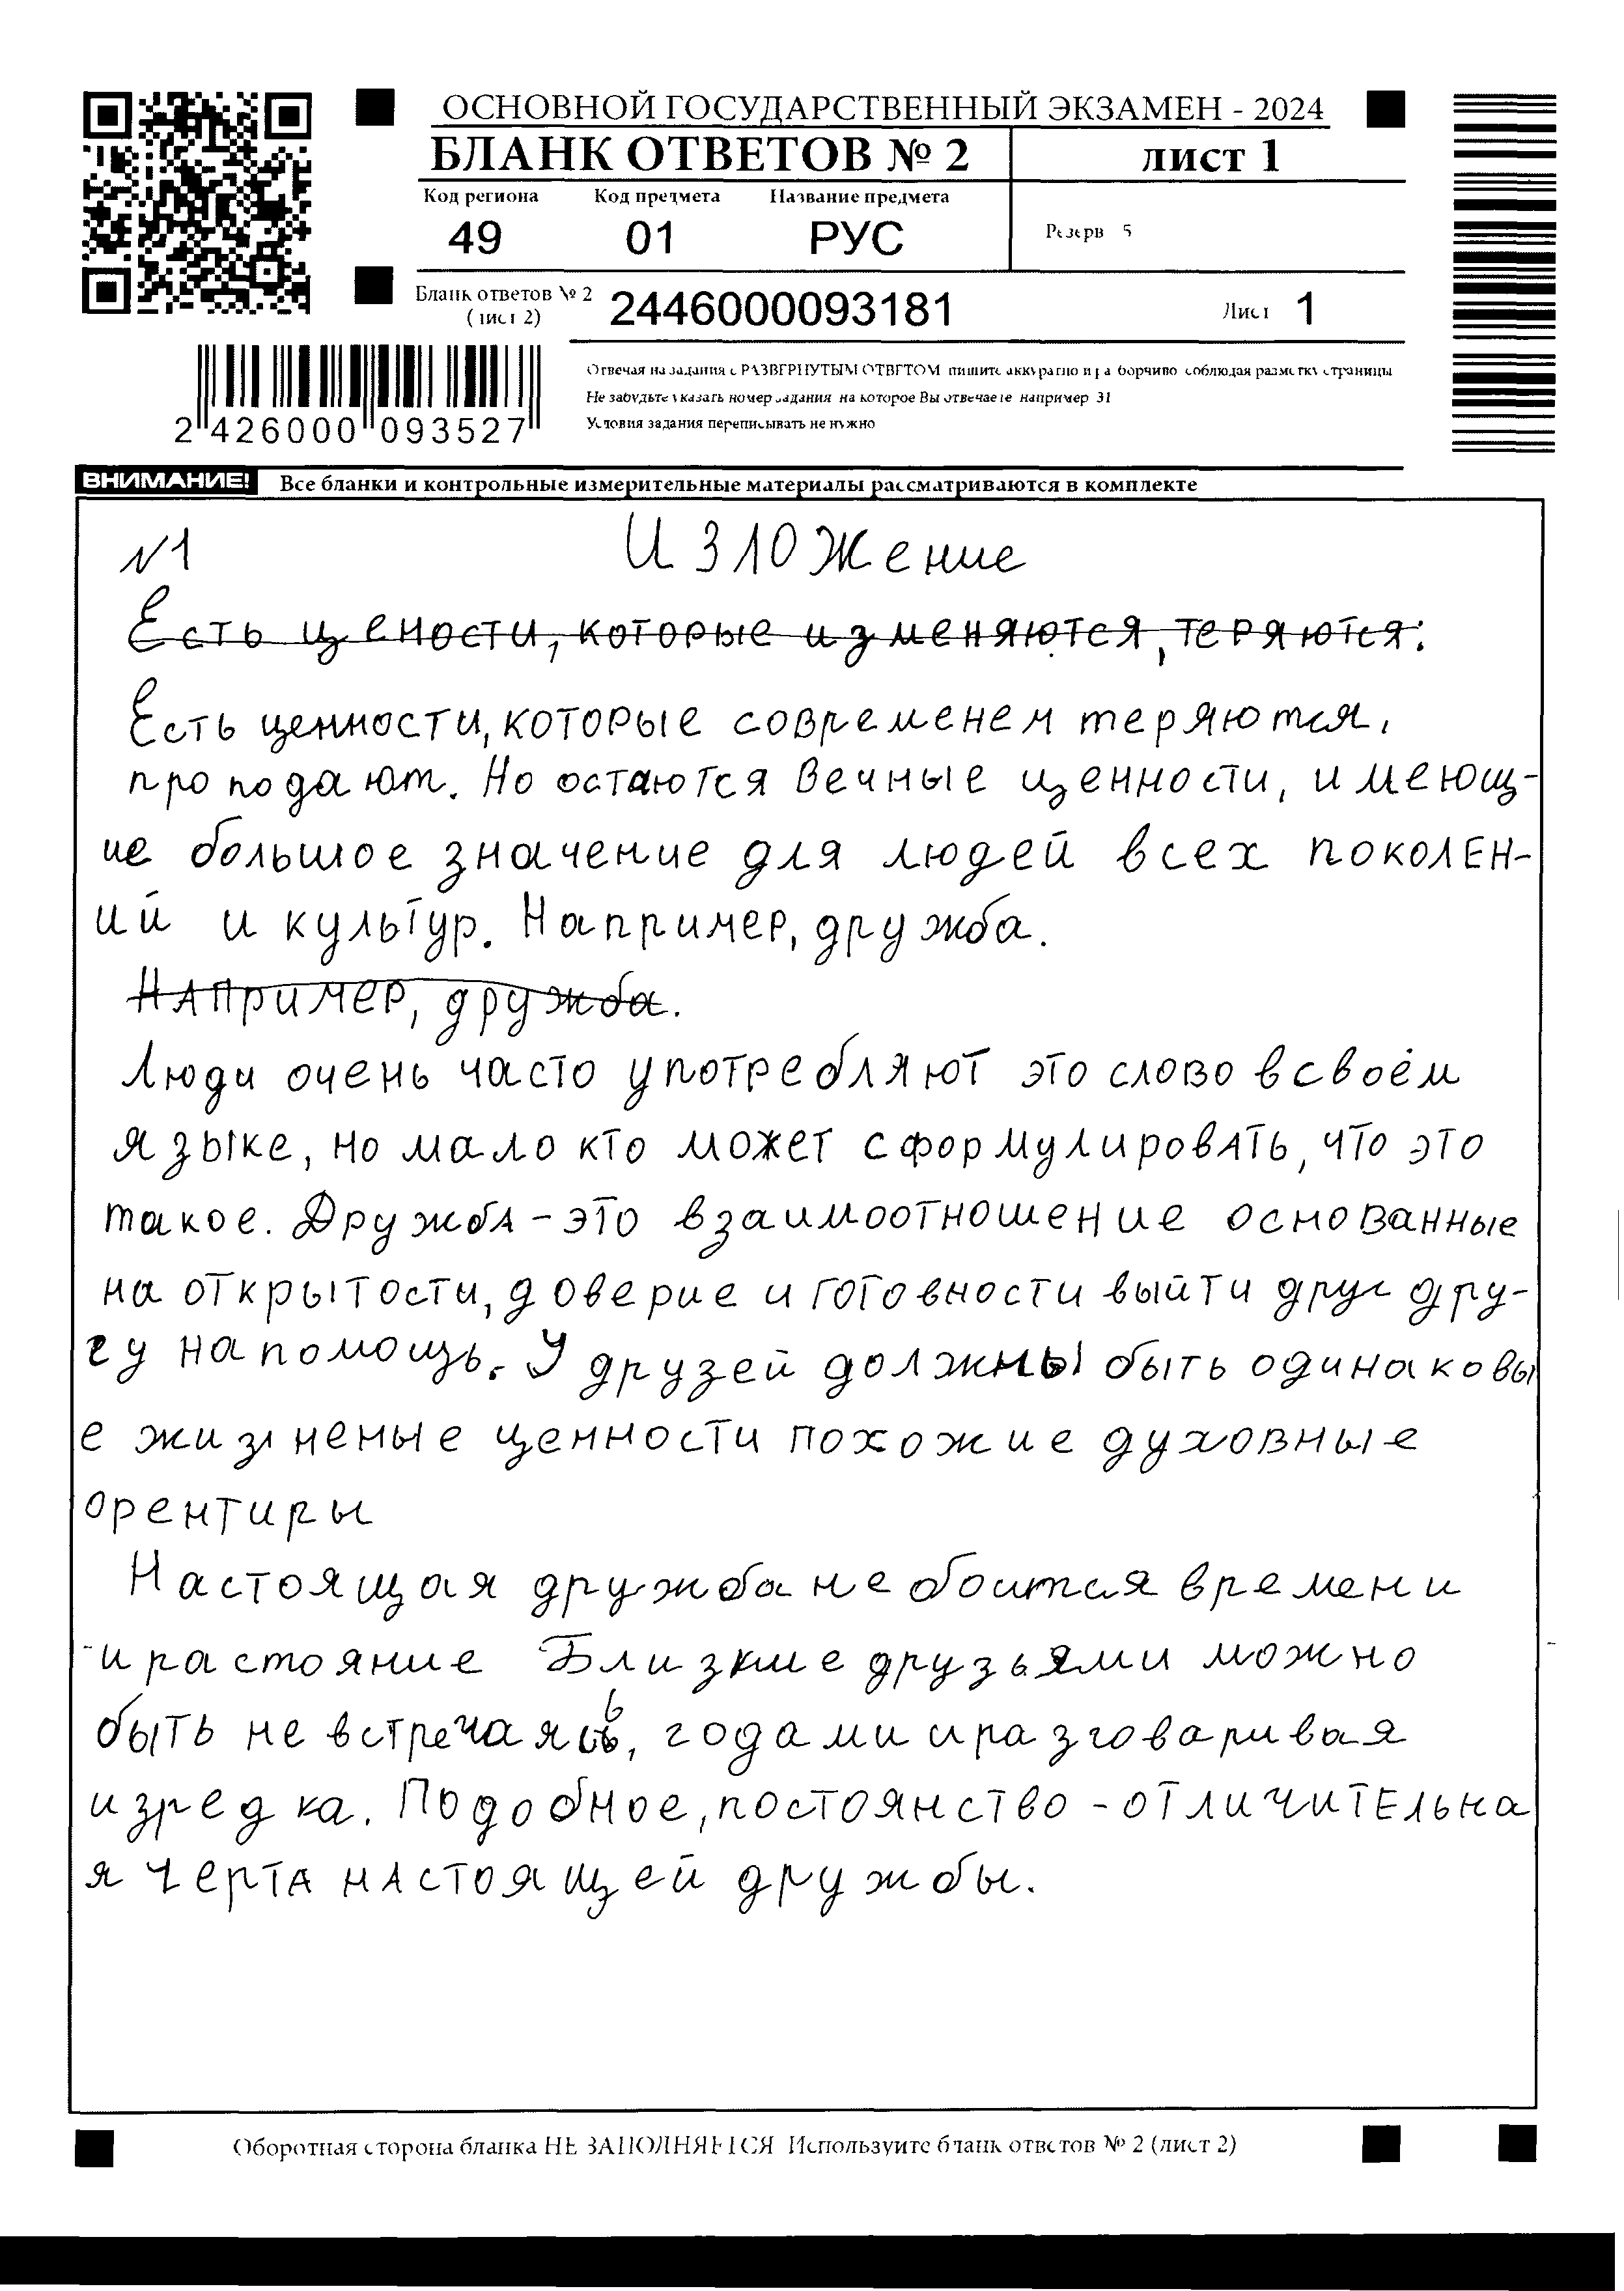 ОСНОВНОЙ ГОСУДАРСТВЕННЫЙ ЭКЗАМЕН - 2024
БЛАНК ОТВЕТОВ № 2 лист 1
Код региона Код предмета Название предмета
49 01 РУС Резерв 5
Бланк ответов № 2 (лист 2) 2446000093181 Лист 1
Отвечая на задания с РАЗВЕРНУТЫМ ОТВЕТОМ пишите аккуратно и разборчиво соблюдая разметку страницы
Не забудьте указать номер задания на которое Вы отвечаете например 31
Условия задания переписывать не нужно
2 426000 093527
ВНИМАНИЕ! Все бланки и контрольные измерительные материалы рассматриваются в комплекте
№1 Изложение
Есть цености, которые изменяются, теряются.
Есть ценности, которые современем теряются,
проподают. Но остаются вечные ценности, имеющ-
ие большое значение для людей всех поколен-
ий и культур. Например, дружба.
Например, дружба.
Люди очень часто употребляют это слово всвоём
языке, но мало кто может сформулировать, что это
такое. Дружба - это взаимоотношение основанные
на открытости, доверие и готовности выйти друг дру-
гу на помощь. У друзей должны быть одинаковы
е жизненые ценности похожие духовные
орентиры
Настоящая дружба не боится времени
и растояние Близкие друзьями можно
быть не встречаясь, годами и разговаривая
изредка. Подобное, постоянство - отличительна
я черта настоящей дружбы.
Оборотная сторона бланка НЕ ЗАПОЛНЯЕТСЯ Используйте бланк ответов № 2 (лист 2)